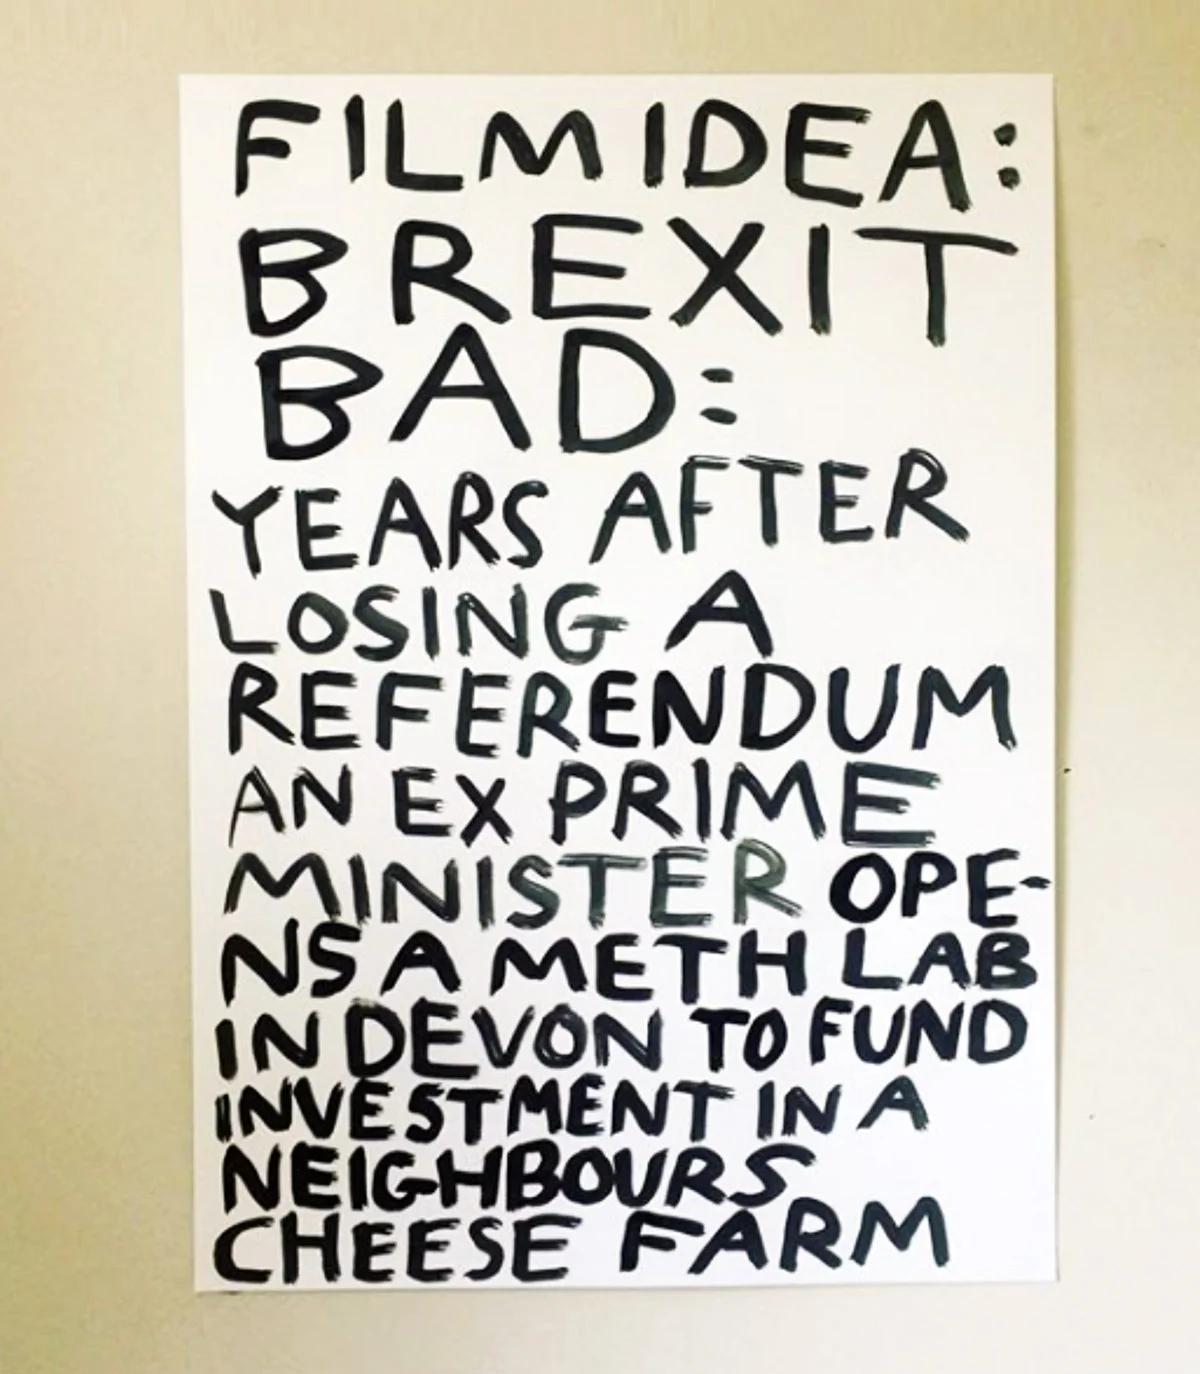 FILM IDEA:
BREXIT
BAD:
YEARS AFTER
LOSING A
REFERENDUM
AN EX PRIME
MINISTER OPE-
NS A METH LAB
IN DEVON TO FUND
INVESTMENT IN A
NEIGHBOURS
CHEESE FARM